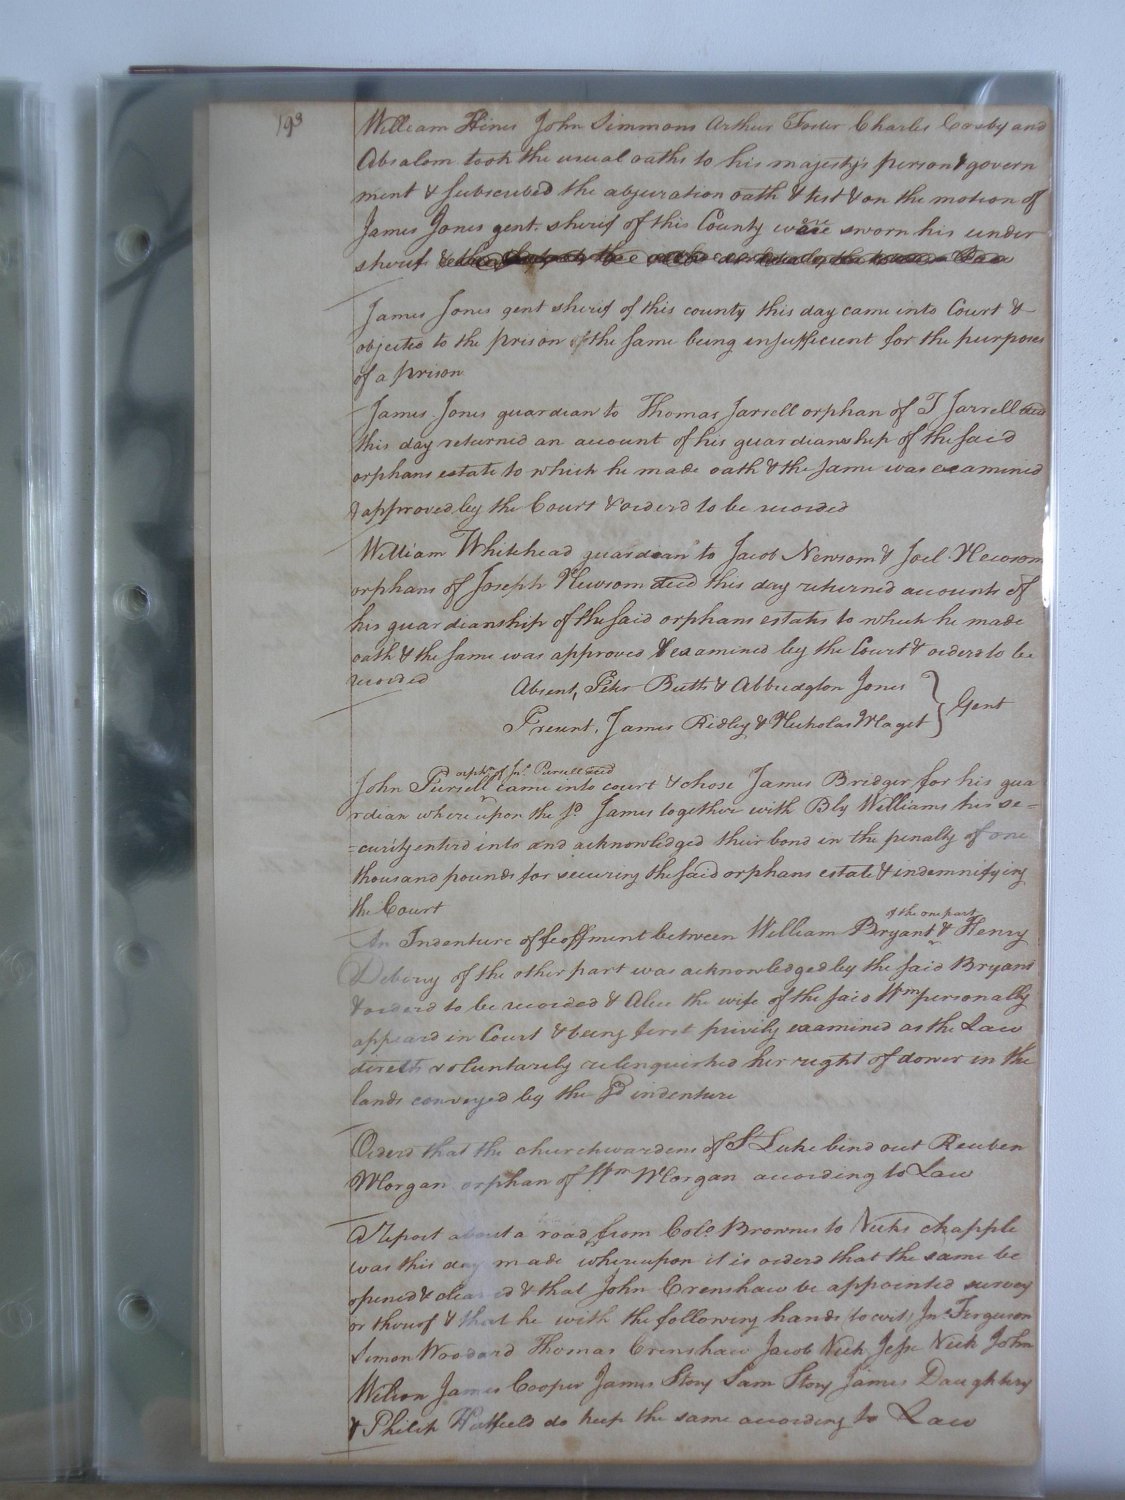 193
William Hines John Simmons Arthur Foster Charles Cosby and
Absalom took the usual oaths to his majesty's person & govern
ment & subscribed the abjuration oath & test & on the motion of
James Jones gent. sherif of this County were sworn his under
sherif
James Jones gent sherif of this county this day came into Court &
objected to the prison of the same being insufficient for the purposes
of a prison
James Jones guardian to Thomas Jarrell orphan of T Jarrell decd
this day returned an account of his guardianship of the said
orphans estate to which he made oath & the same was examined
& approved by the Court & orderd to be recorded
William Whitehead guardian to Jacob Newsom & Joel Newsom
orphans of Joseph Newsom decd this day returned accounts of
his guardianship of the said orphans estates to which he made
oath & the same was approved & examined by the Court & orderd to be
recorded
Absent, Peter Butts & Albridgton Jones
Present, James Ridley & Nicholas Maget } Gent
orphn of Jno Pursell decd
John Pursell came into court & chose James Bridger for his gua
rdian whereupon the sd James together with Bly Williams his se=
=curity enterd into and acknowledged their bond in the penalty of one
thousand pounds for securing the said orphans estate & indemnifying
the Court
of the one part
An Indenture of feoffment between William Bryant & Henry
Deberry of the other part was acknowledged by the said Bryant
& orderd to be recorded & Alice the wife of the said Wm personally
appeard in Court & being first privily examined as the Law
directs voluntarily relinquished her right of dower in the
lands conveyed by the sd indenture
Orderd that the churchwardens of St Luke bind out Reuben
Morgan orphan of Wm Morgan according to Law
A Report about a road from Colo Brownes to Nicks chapple
was this day made whereupon it is orderd that the same be
opened & cleared & that John Crenshaw be appointed survey
or thereof & that he with the following hands (to wit) Jno Ferguson
Simon Woodard Thomas Crenshaw Jacob Nick Jesse Nick John
Wilson James Cooper James Story Sam Story James Daughtery
& Philip Hatfield do keep the same according to Law